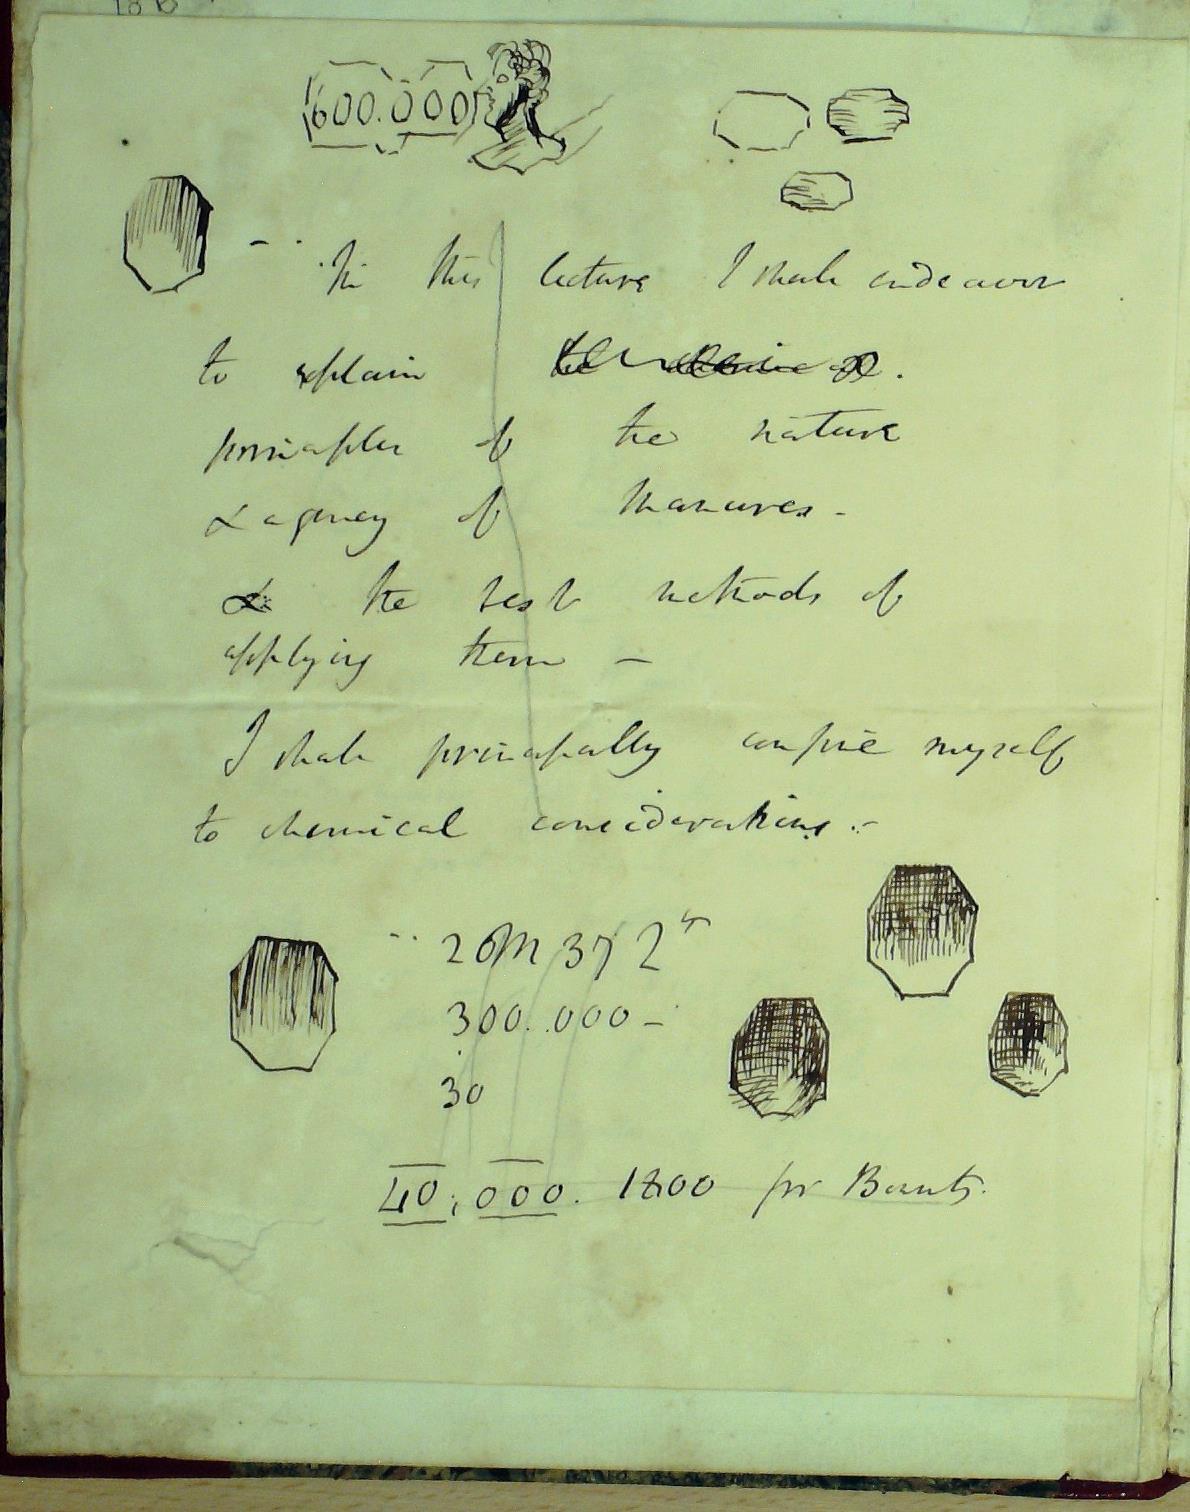 600.000
In this lecture I shall endeavour
to explain the
principles of the nature
& agency of manures -
& the best methods of
applying them -
I shall principally confine myself
to chemical considerations. -
300.000 -
30
40,000. 1800 for